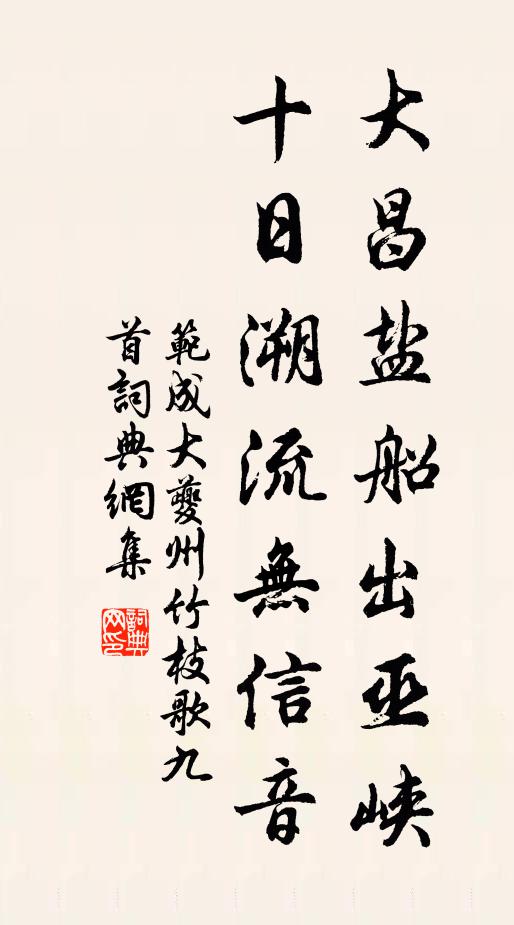 大昌盐船出巫峡
十日溯流無信音
範成大夔州竹枝歌九
首詞典網集
詞典網印